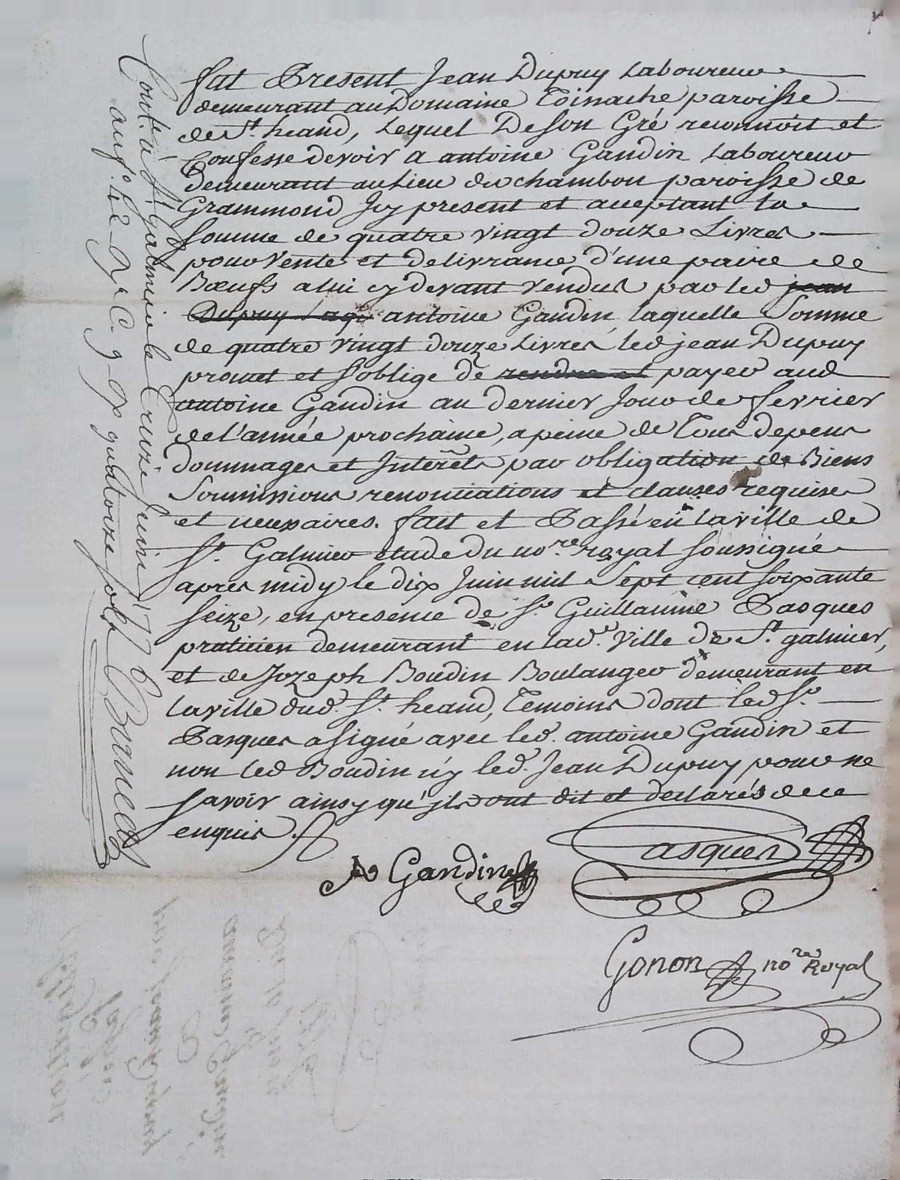 fut Present Jean Dupuy Laboureur
demeurant au Domaine Toinache paroisse
de St. heand, Lequel De Son Gré reconnoit et
Confesse devoir a antoine Gandin Laboureur
demeurant au Lieu du chambon paroisse de
Grammond Jcy present et acceptant la
Somme de quatre vingt douze Livres
pour vente et delivrance d'une paire de
Bœufs a lui cy devant vendus par led jean
Dupuy antoine Gandin, laquelle Somme
de quatre vingt douze Livres led jean Dupuy
promet et s'oblige de rendre et payer aud
antoine Gandin au dernier Jour de fevrier
de l'année prochaine, a peine de Tous depens
dommages et Interêts par obligation de Biens
Soumissions renonciations et clauses requises
et necessaires. fait et Passé en la ville de
St. Galmier etude du nore. royal soussigné
après midy le dix Juin mil Sept cent soixante
seize, en presence de Sr. Guillaume Pasques
praticien demeurant en lade. ville de St. galmier,
et de Jozeph Boudin Boulanger demeurant en
la ville dud. St. heand, Temoins dont led Sr.
Pasques a signé avec led. antoine Gandin et
non led Boudin n'y led. Jean Dupuy pour ne
savoir ainsy qu'jls ont dit et declarés de ce
enquis.
A Gandin
Pasques
Gonon nore Royal
Cont. à St. Galmier le Treize Juin 1776
quatorze sols